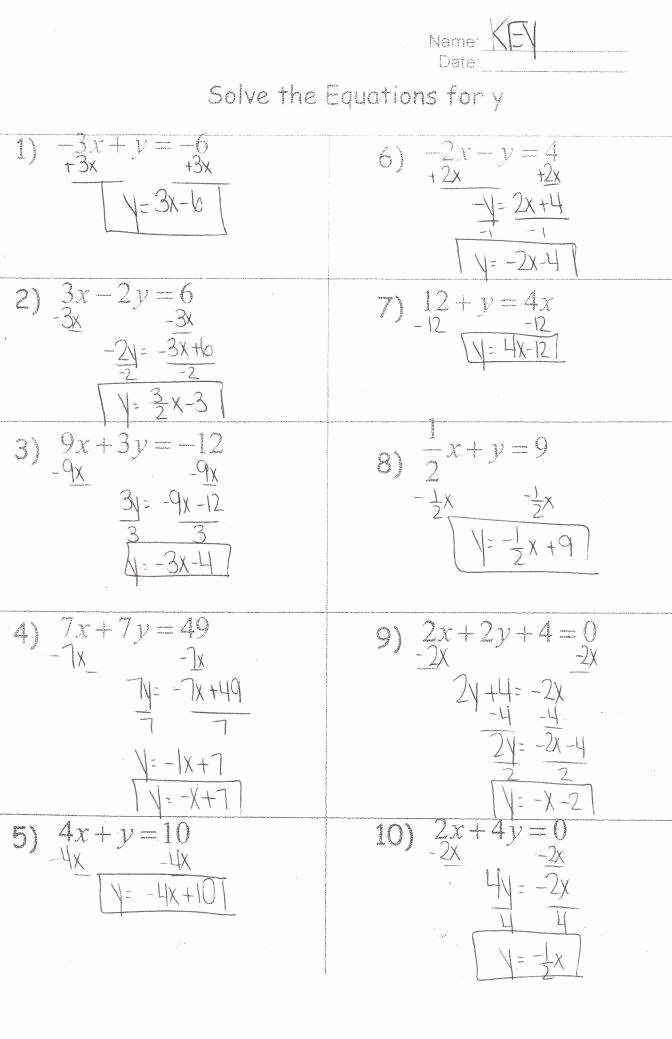 Name: KEY
Date:
Solve the Equations for y
1) -3x + y = -6
+3x +3x
y = 3x - 6
2) 3x - 2y = 6
-3x -3x
-2y = -3x+6
-2 -2
y = 3/2 x - 3
3) 9x + 3y = -12
-9x -9x
3y = -9x - 12
3 3
y = -3x - 4
4) 7x + 7y = 49
-7x -7x
7y = -7x + 49
7 7
y = -1x + 7
y = -x + 7
5) 4x + y = 10
-4x -4x
y = -4x + 10
6) -2x - y = 4
+2x +2x
-y = 2x + 4
-1 -1
y = -2x - 4
7) 12 + y = 4x
-12 -12
y = 4x - 12
8) 1/2 x + y = 9
-1/2 x -1/2 x
y = -1/2 x + 9
9) 2x + 2y + 4 = 0
-2x -2x
2y + 4 = -2x
-4 -4
2y = -2x - 4
2 2
y = -x - 2
10) 2x + 4y = 0
-2x -2x
4y = -2x
4 4
y = -1/2 x